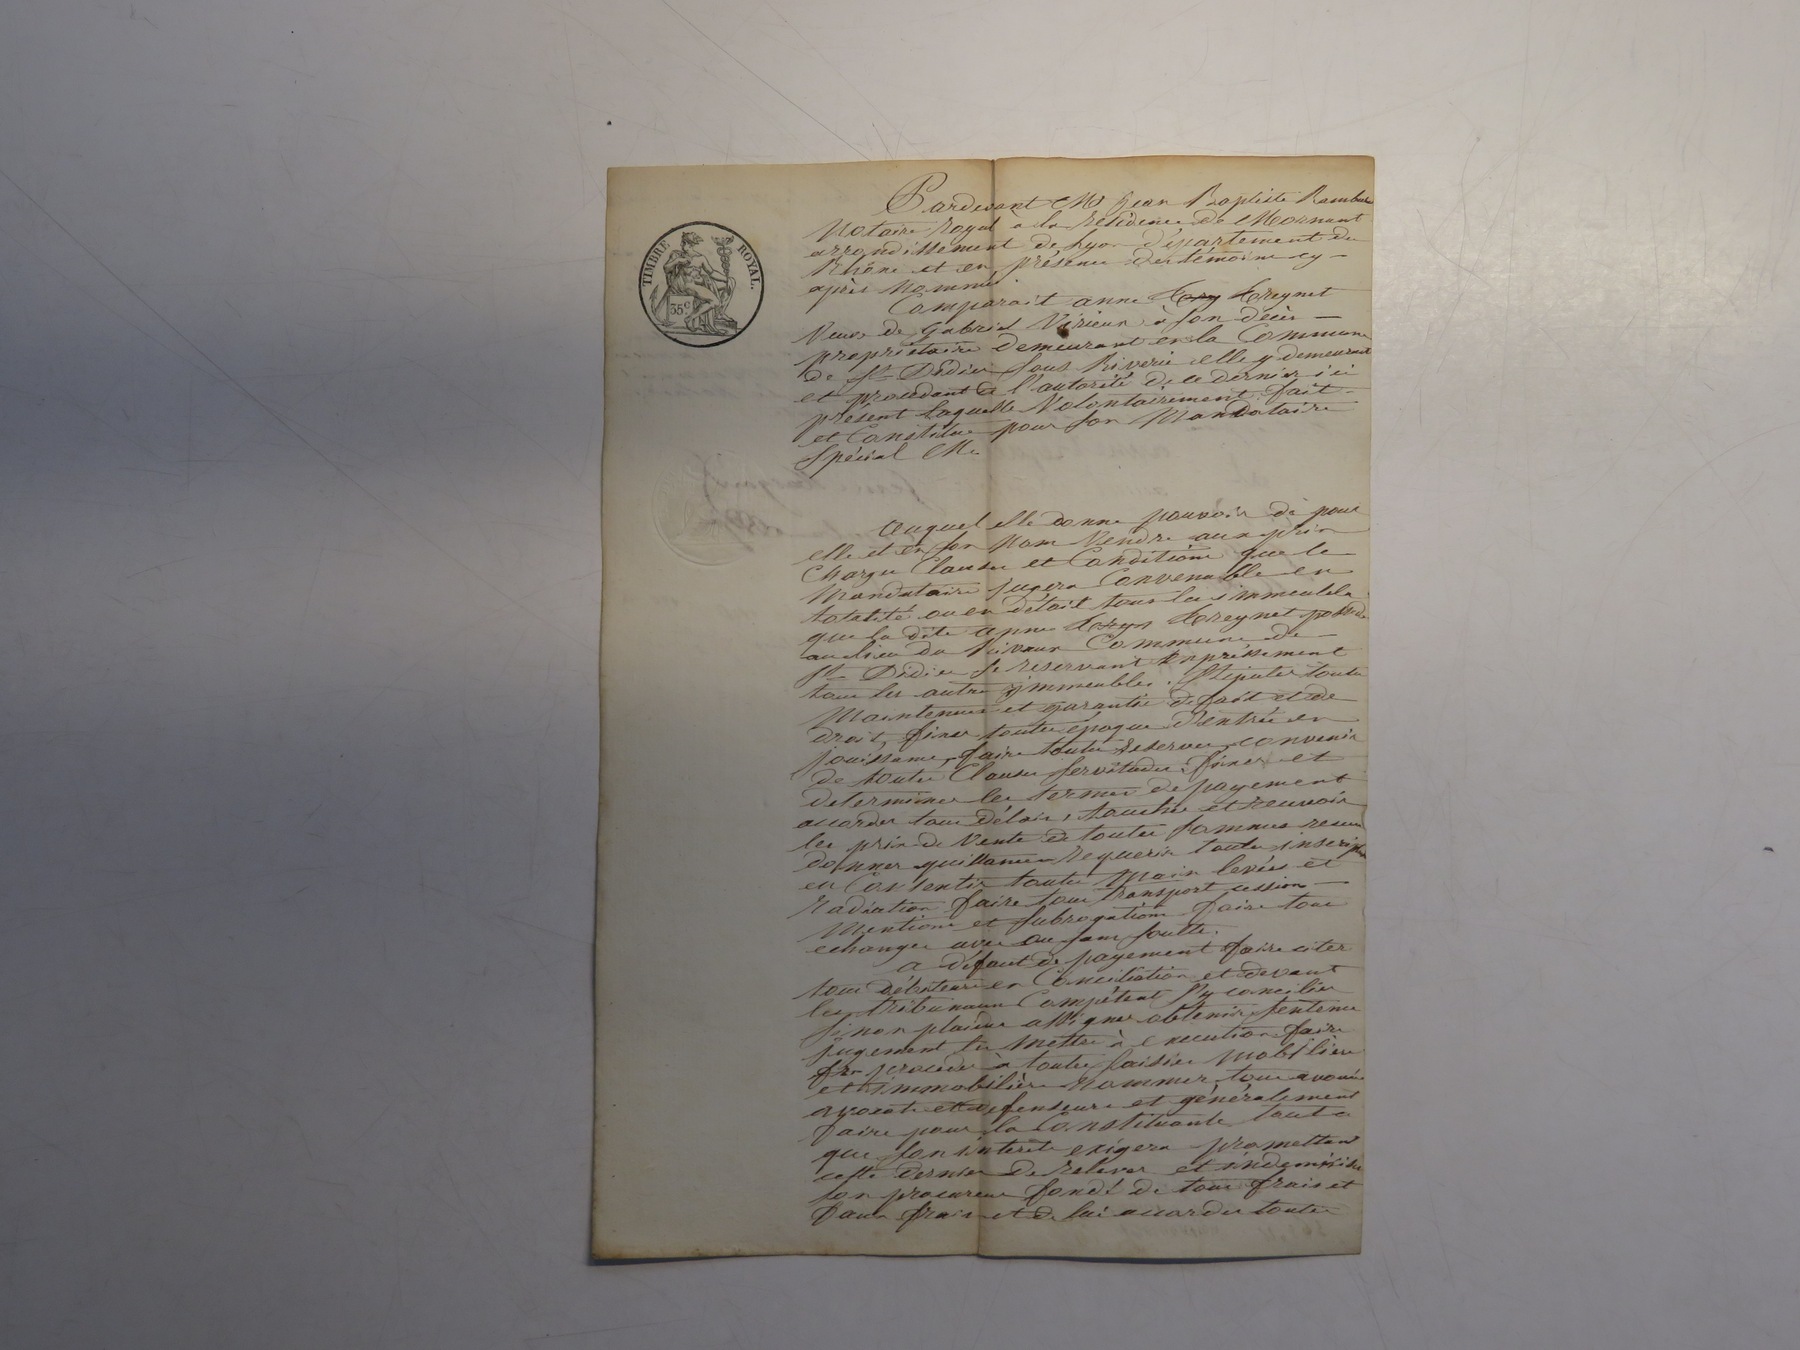 TIMBRE ROYAL.
35c
Pardevant Me Jean Baptiste Rambau
Notaire Royal à la résidence de Mornant
arrondissement de Lyon département du
Rhône et en présence des témoins cy-
après nommés.
Comparait anne Trey Treynet
Veuve de Gabriel Virieux à son décès
propriétaire demeurant en la Commune
de St Didier sous Riverie elle y demeurant
et procédant de l'autorité de ce dernier ici
présent laquelle Volontairement fait
et Constitue pour son Mandataire
Spécial Me
auquel elle donne pouvoir de pour
elle et en son Nom Vendre aux prix
Charges Clauses et Conditions que le
Mandataire jugera Convenable en
totalité ou en détail tous les immeubles
que la dite anne Treyn Treynet possède
au lieu du Commune de
St Didier se reservant Expréssement
tous les autres immeubles. Stipuler toutes
Maintenues et garantie de fait et de
droit, fixer toute époque d'entrée en
jouissance, faire toutes reserves, convenir
de toutes Clauses servitudes, fixer et
determiner les termes de payement
accorder tous délais, toucher et recevoir
les prix de Vente de toutes sommes reçues
donner quittances requerir toutes inscription
en Consentir toutes Main levées et
Radiation faire tous transport cession
Mentions et subrogations faire tous
echanges avec ou sans soulte.
a défaut de payement faire citer
tous débiteurs en Conciliation et devant
les tribunaux Compétent s'y concilier
sinon plaider assigner obtenir sentence
jugement les Mettre à execution faire
procéder à toutes saisies mobilière
et immobilière Nommer tous avoués
avocats et defenseurs et généralement
faire pour la Constituante tout ce
que son intérêt exigera promettant
cette dernier de relever et indemniser
son procureur fondé de tous frais et
faux frais et de lui accorder toute